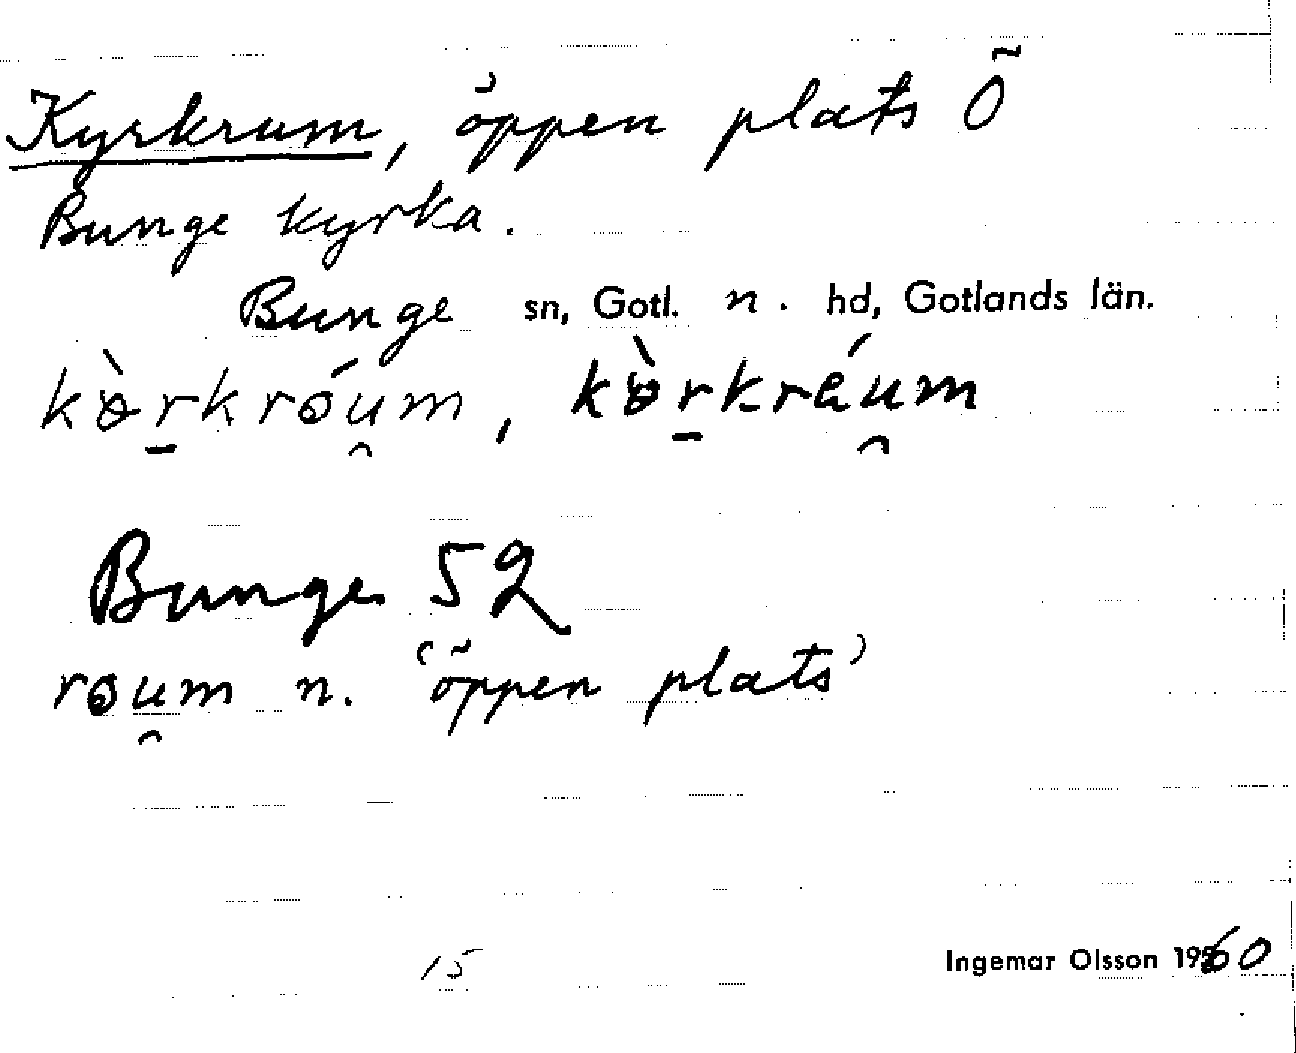 Kyrkrum, öppen plats Ö
Bunge kyrka.
Bunge sn, Gotl. n. hd, Gotlands län.
kɵ̀r̠krɵ́u̯m, kɵ̀r̠kráu̯m
Bunge 52
rɵu̯m n. 'öppen plats'
15
Ingemar Olsson 1960